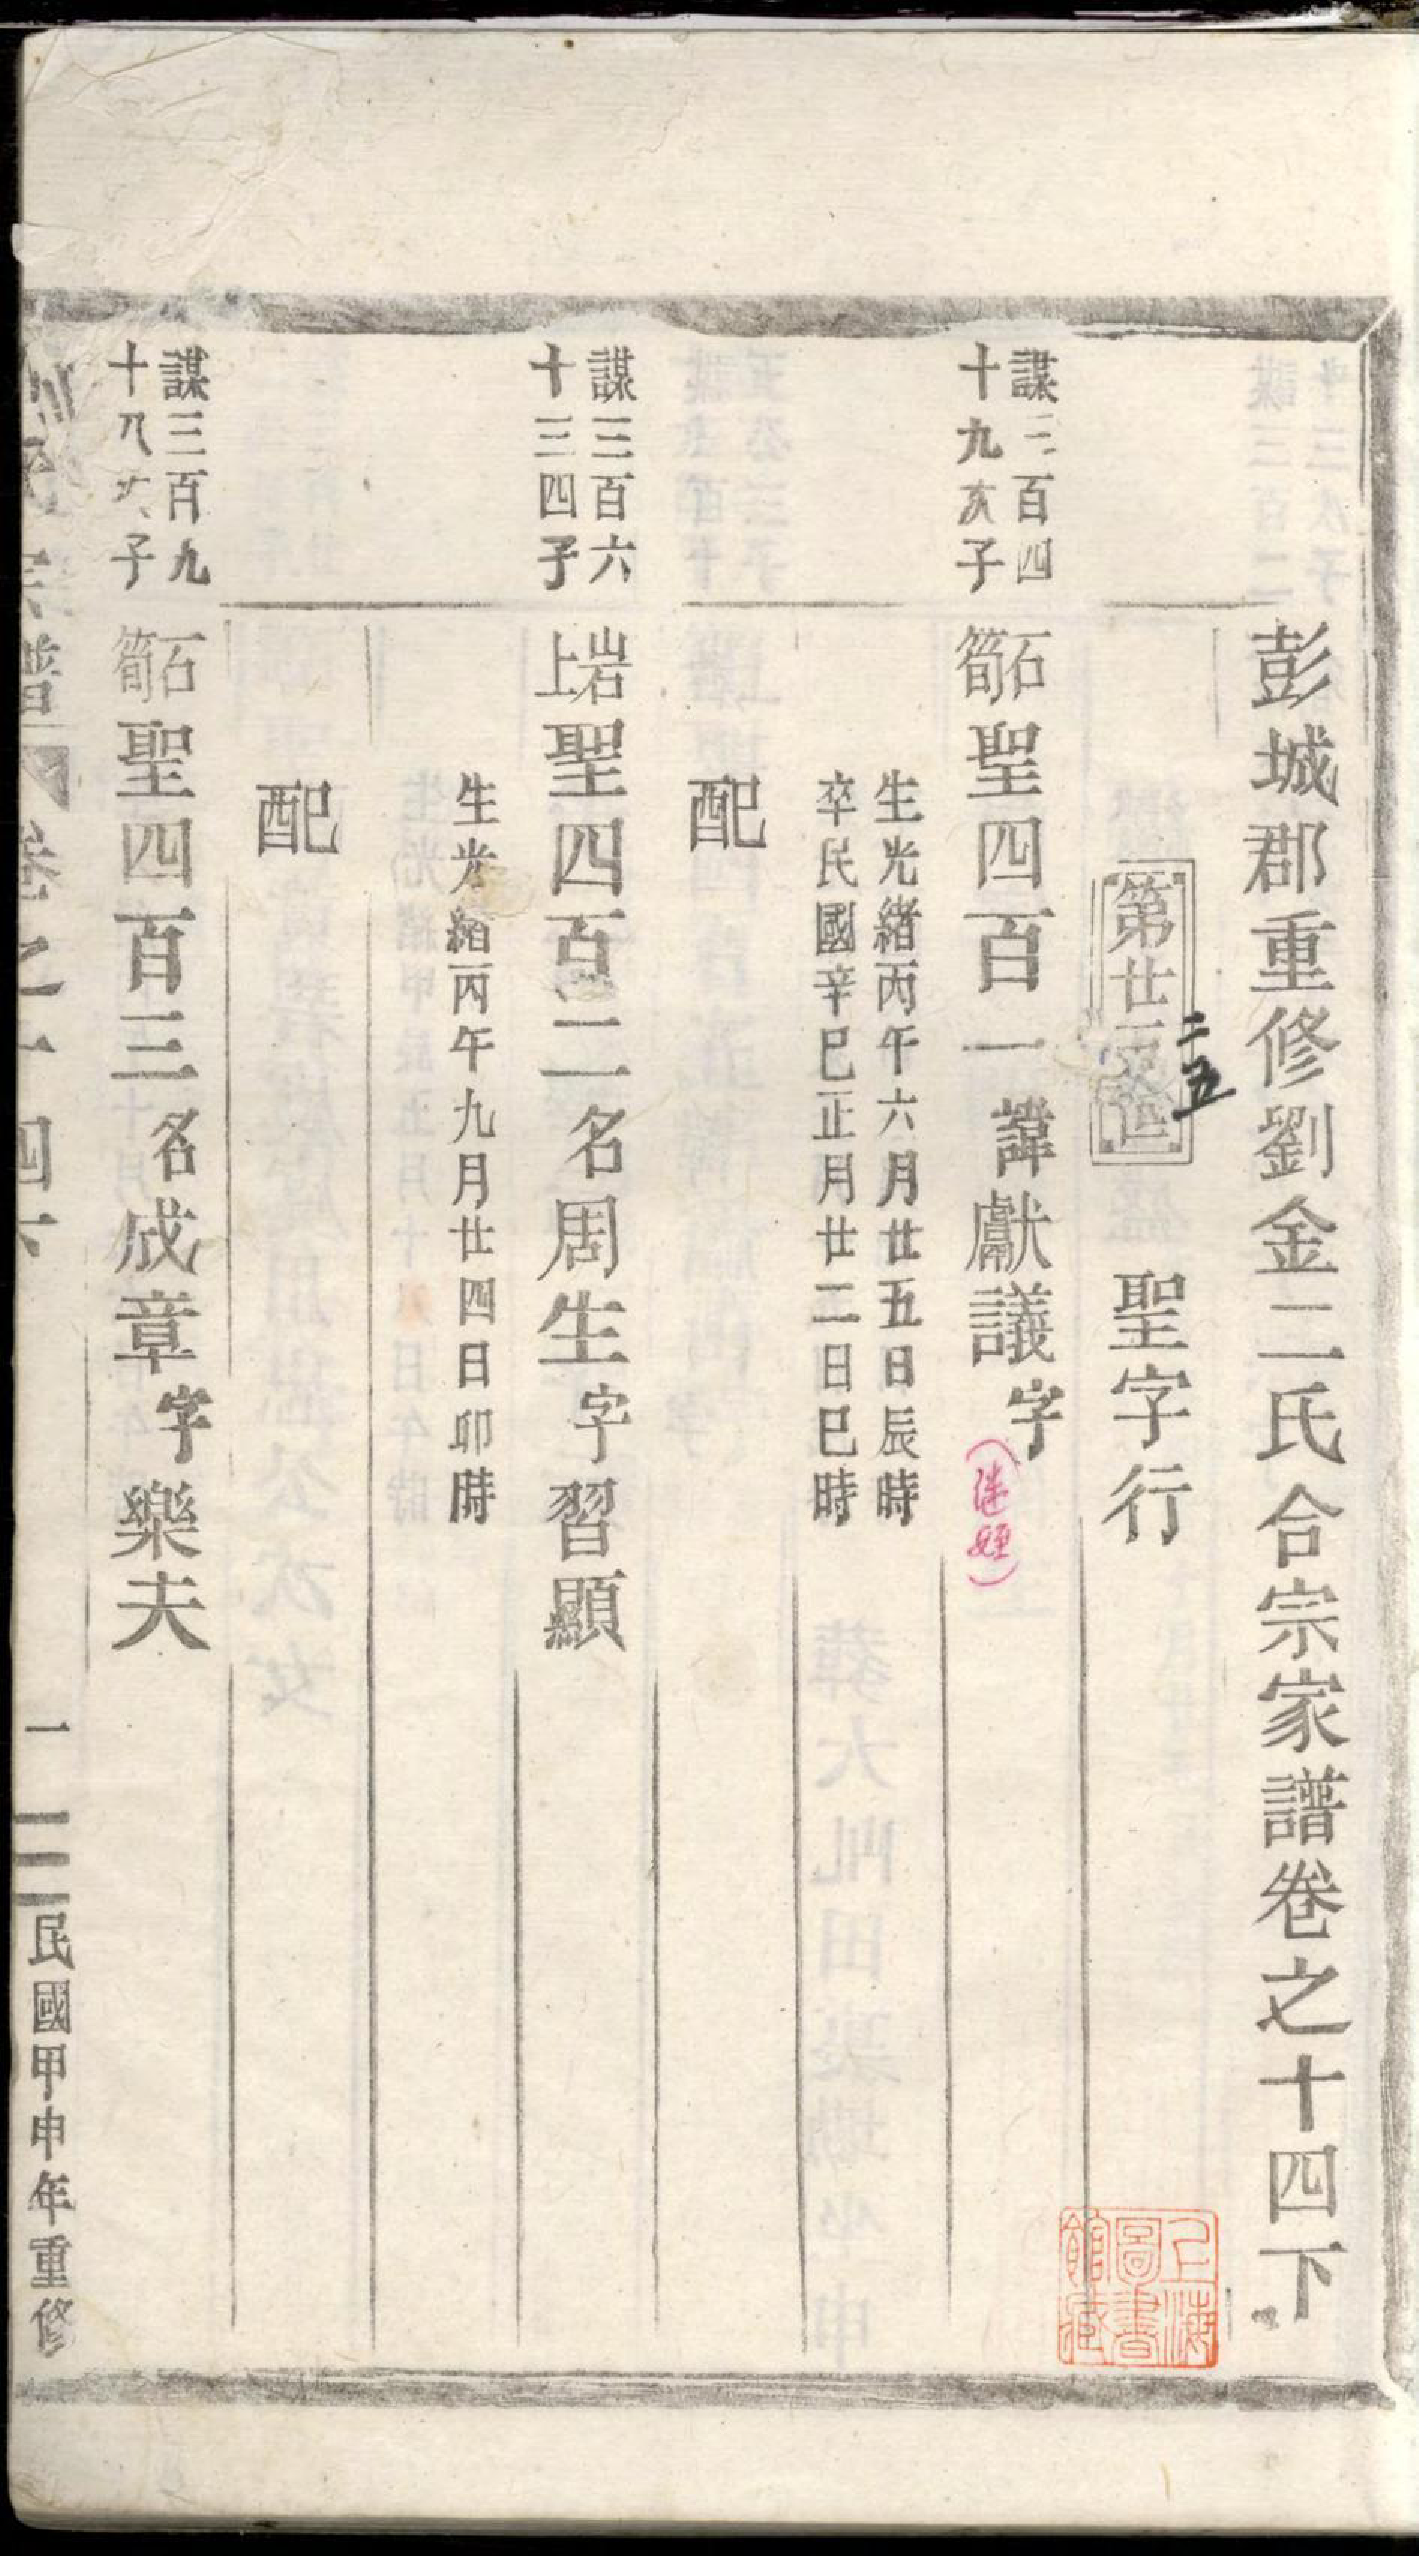 彭城郡重修劉金二氏合宗家譜卷之十四下
第廿世
二五
聖字行
上海圖書館藏
謀三百四
十九次子
石筍聖四百一諱獻議字
生光緒丙午六月廿五日辰時
卒民國辛巳正月廿二日巳時
配
謀三百六
十三四子
岩上聖四百二名周生字習顯
生光緒丙午九月廿四日卯時
配
謀三百九
十八子
石筍聖四百三名成章字樂夫
氏宗譜
卷之十四下
一
民國甲申年重修